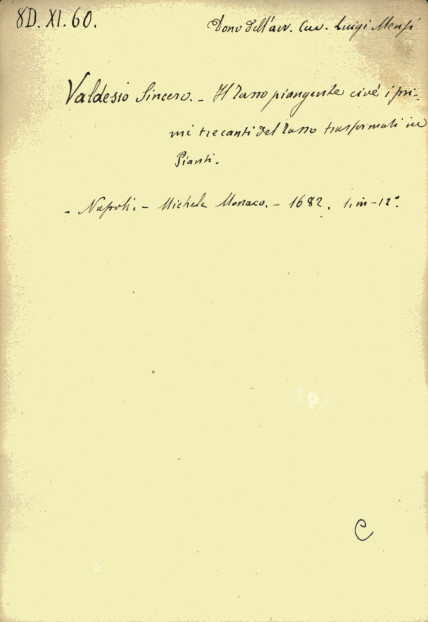 8D. XI. 60.
Dono dell'avv. Cav. Luigi Mensi
Valdesio Sincero. - Il Tasso piangente cioè i pri-
mi tre canti del Tasso trasformati in
Pianti.
- Napoli. - Michele Monaco. - 1682. 1. in-12°.
C